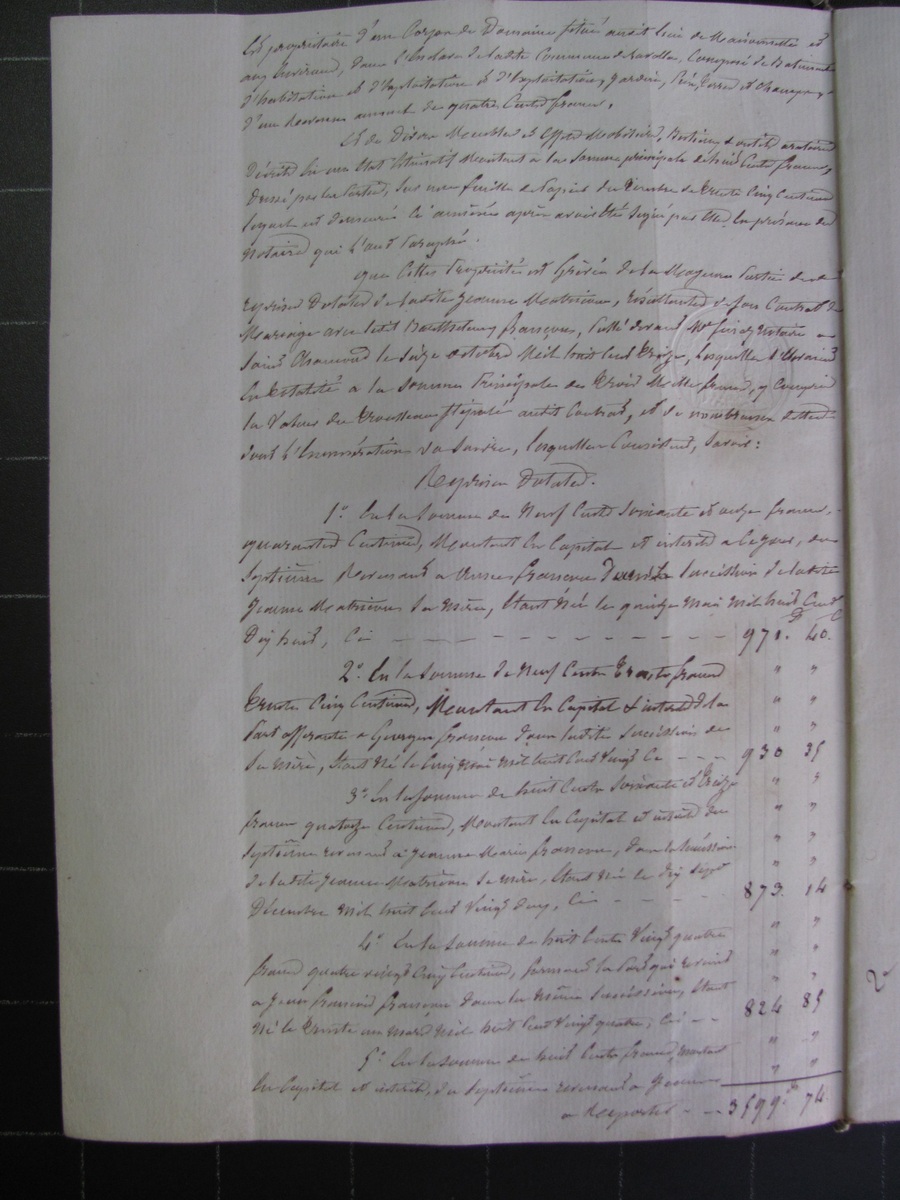 Est propriétaire d'un Corps de Domaine situé audit lieu de et
aux Environs, dans l'Enclave de ladite Commune de Composé de Batiments
d'habitation et d'Exploitation et d'Exploitation, Jardin, Pré, Terres et Champs,
d'un Revenu annuel de quatre Cents francs.
Et de Divers Meubles et Effets Mobiliers, Bestiaux & outils aratoires
Décrits en un Etat Estimatif Montant a la Somme principale de huit Cents francs,
Dressé par les Parties, sur une feuille de Papier du Timbre de trente Cinq Centimes
lequel est demeuré Ci annéxé après avoir été signé par Elles, En présence des
Notaires qui l'ont Paraphé.
que Cettes Propriétés est Grévée de la Majeure Partie des
reprises Dotales de ladite Jeanne résultantes de son Contrat de
Mariage avec ledit Barthelemy françon, Passé devant Me Notaire a
Saint Chamond le Seize octobre Mil huit Cent Treize, lesquelles
En totalité a la Somme Principale de Trois Mille francs, y Compris
la Valeur du Trousseau Stipulé audit Contrat, et de
dont l'Enumération Va Suivre, lesquelles Consistent, Savoir:
Reprises Dotales.
1º En la Somme de Neuf Cents Soixante et onze francs,
quarante Centimes, Montant En Capital et intérêts a Ce jour, du
Septième Revenant a françon dans la Succession de ladite
Jeanne Sa Mère, Etant Né le quinze mai mil huit Cent
Dix huit, Ci — — — 971. 40.
2º En la Somme de Neuf Cents Trente francs " "
trente Cinq Centimes, Montant En Capital & intérêts de la " "
Part afférente a françon dans ladite Succession de " "
Sa Mère, Etant Né le Cinq Mai mil huit Cent Vingt Ci — — 930 35
3º En la Somme de huit Cents Soixante et Treize " "
francs quatorze Centimes, Montant En Capital et intérêts du " "
Septième revenant a Jeanne Marie françon, dans la Succession " "
de ladite Jeanne Sa Mère, Etant Née le Dix Sept " "
Décembre Mil huit Cent Vingt deux, Ci — — — 873. 14
4º En la Somme de huit Cents Vingt quatre " "
francs quatre vingt Cinq Centimes, formant la Part qui revient " "
a Jean françois françon dans la Même Succession, Etant " "
Né le trente un Mars Mil huit Cent Vingt quatre, Ci — — 824 85
5º En la Somme de huit Cents francs, montant " "
En Capital et intérêts, du Septième revenant a " "
a Reporter — — 3599f 74.
2e